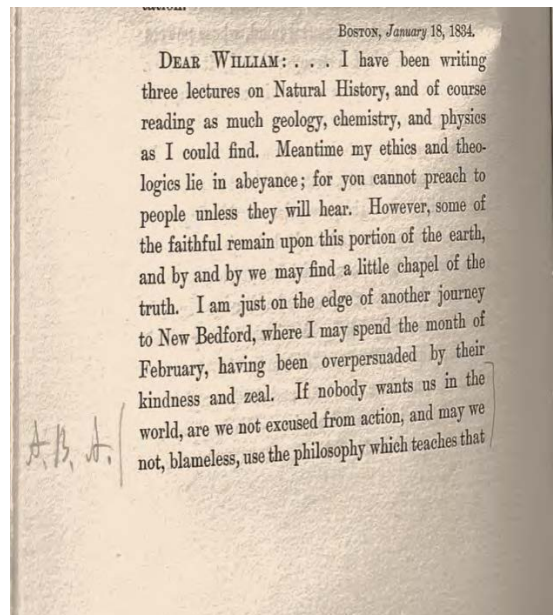 BOSTON, January 18, 1834.
DEAR WILLIAM: . . . I have been writing
three lectures on Natural History, and of course
reading as much geology, chemistry, and physics
as I could find. Meantime my ethics and theo-
logics lie in abeyance; for you cannot preach to
people unless they will hear. However, some of
the faithful remain upon this portion of the earth,
and by and by we may find a little chapel of the
truth. I am just on the edge of another journey
to New Bedford, where I may spend the month of
February, having been overpersuaded by their
kindness and zeal. If nobody wants us in the
world, are we not excused from action, and may we
A. B. A.
not, blameless, use the philosophy which teaches that